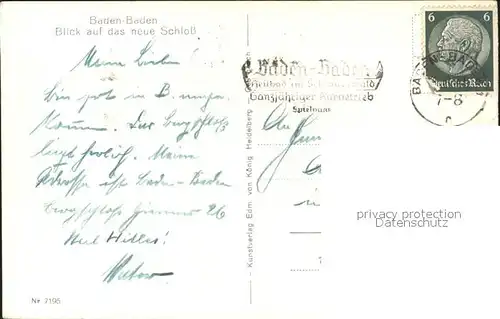 Baden-Baden
Blick auf das neue Schloß
Meine Lieben
bin gut in B. ange-
kommen. Das
liegt herrlich. Meine
Adresse ist Baden-Baden
Zimmer 26
Heil Hitler!
Nr. 7195
- Kunstverlag Edm. von König, Heidelberg
Baden-Baden
Heilbad im Schwarzwald
Ganzjähriger Kurbetrieb
Spielbank
6 6
Deutsches Reich
BADEN-BADEN
An
privacy protection
Datenschutz